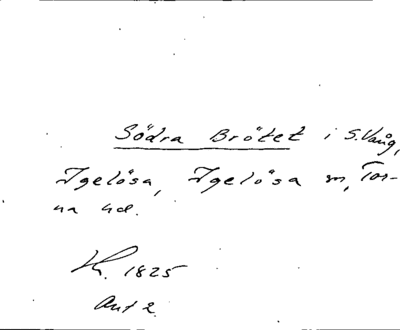 Södra Brötet i S. Vång,
Igelösa, Igelösa sn, Tor-
na hd.
Kh. 1825
Akt 2.